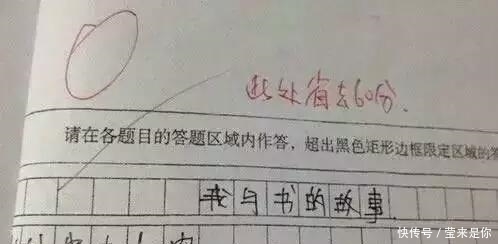 此处省去60分.
请在各题目的答题区域内作答，超出黑色矩形边框限定区域的答
我与书的故事
快传号／莹来是你